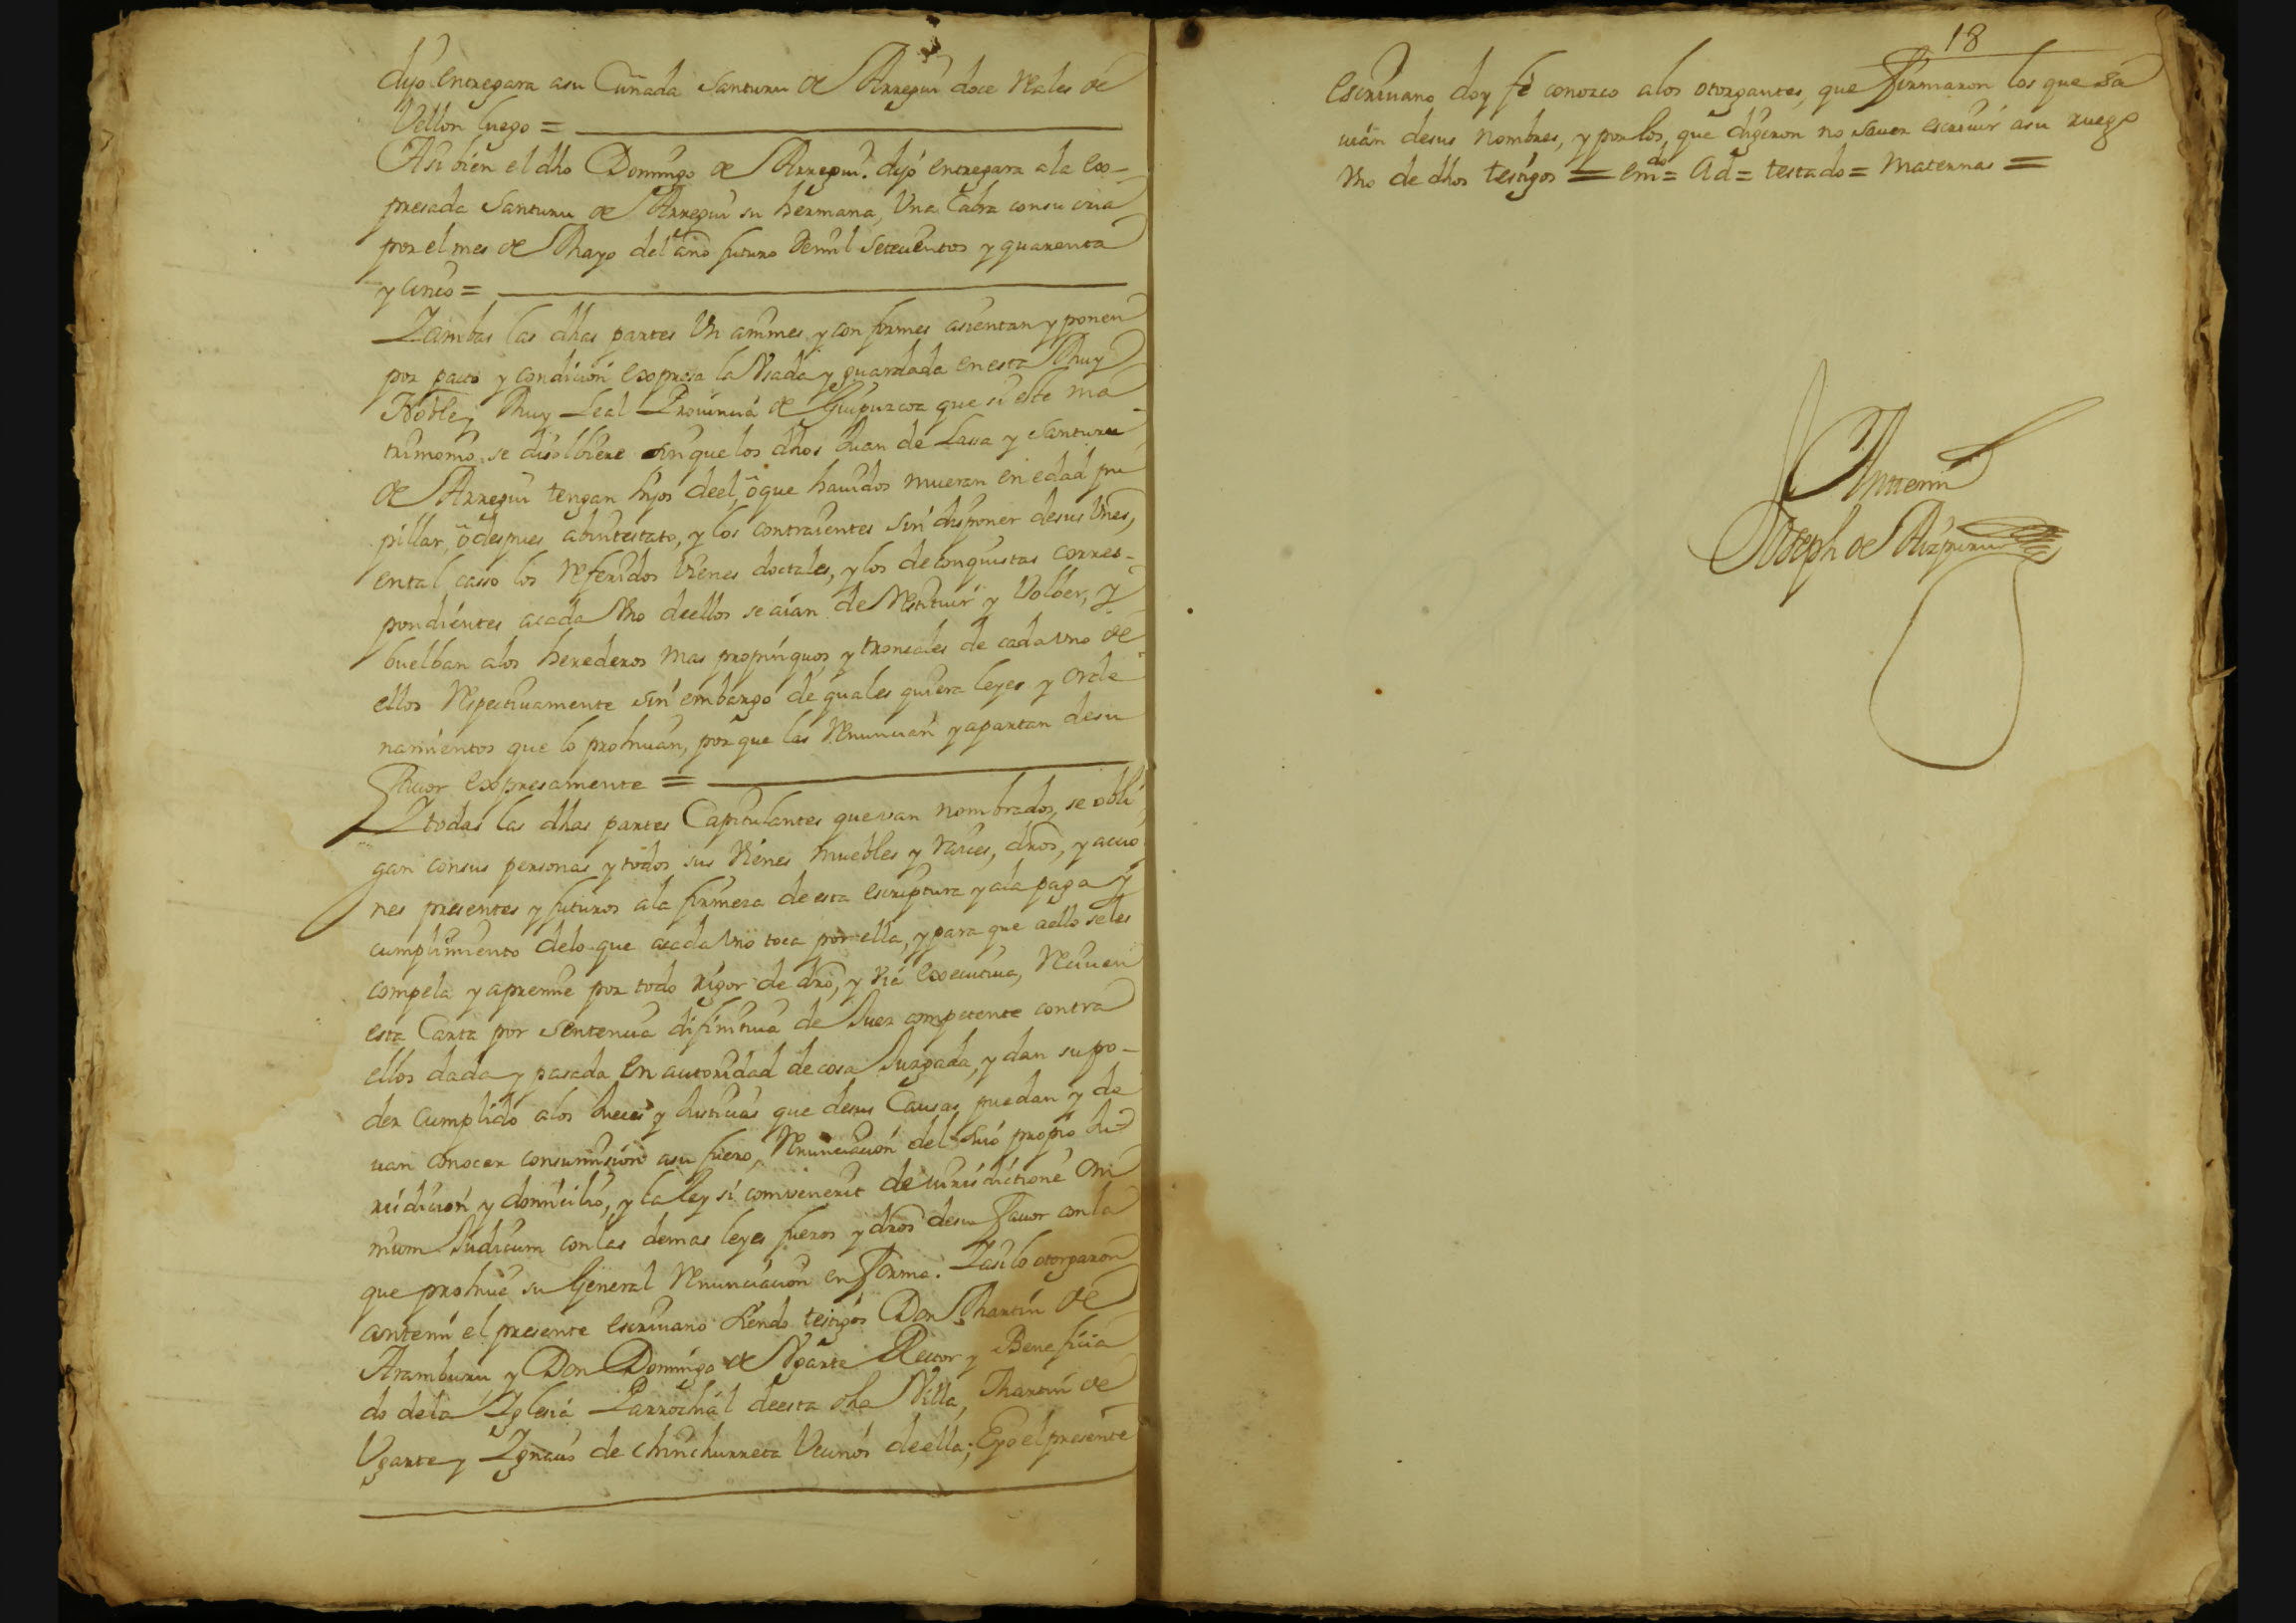 dijo entregara asu Cuñada Santuru de Arregui doce Reales de
Vellon luego =
Asi bien el dho Domingo de Arregui dijo entregara ala ex-
presada Santuru de Arregui su hermana, Una Cabra consu cria
por el mes de Mayo del año futuro de mil Setecientos y quarenta
y cinco =
Y ambas las dhas partes Un animes y conformes asientan y ponen
por pacto y condicion expresa la Usada y guardada en esta Muy
Noble y Muy Leal Provincia de Guipuzcoa que si este ma-
trimonio se disolbiere sin que los dhos Juan de Lassa y Santuru
de Arregui tengan hijos deel, ô que hauidos mueran en edad pu
pillar, ô despues abintestato, y los contraientes sin disponer desus Vienes,
ental casso los referidos Vienes doctales, y los de conquistas corres-
pondientes acada Uno deellos se aian de Restituir y Volver, y
buelban alos herederos mas propinquos y tronsales de cada Uno de
ellos Respectiuamente sin embargo de quales quiera leyes y orde
namientos que lo prohiuan, por que las Renuncian y apartan desu
fauor expresamente =
Y todas las dhas partes Capitulantes que van nombrados, se obli
gan consus personas y todos sus Vienes muebles y raices, dros, y accio
nes presentes y futuros ala firmeza de esta escriptura y ala paga y
cumplimiento delo que acada Uno toca por ella, y para que aello seles
compela y apremie por todo rigor de dro, y Via executiua, Reciuen
esta Carta por Sentencia difinitiua de Juez competente contra
ellos dada y pasada en autoridad de cosa Juzgada, y dan su po-
der cumplido alos Jueces y Justicias que desus Causas puedan y de
uan conocer consumision asu fuero, Renunciacion del suio propio Ju-
risdicion y domicilio, y la ley si convenerit de iurisdictione om
nium Judicum con las demas leyes fueros y dros desu fauor con la
que prohiue su General Renunciacion en forma. Y asi lo otorgaron
antemi el presente escriuano siendo testigos Don Martin de
Aramburu y Don Domingo de Ugarte Rector y Beneficia
do dela Yglesia Parrochial deesta dha Villa, Martin de
Ugarte y Ygnacio de Chinchurreta Vecinos deella; E yo el presente
18
escriuano doy fè conozco alos otorgantes, que firmaron los que sa
uian desus nombres, y por los que digeron no sauer escriuir asu ruego
Uno de dhos testigos = em do = ad = testado = maternas =
Antemi
Joseph de Aizpuru